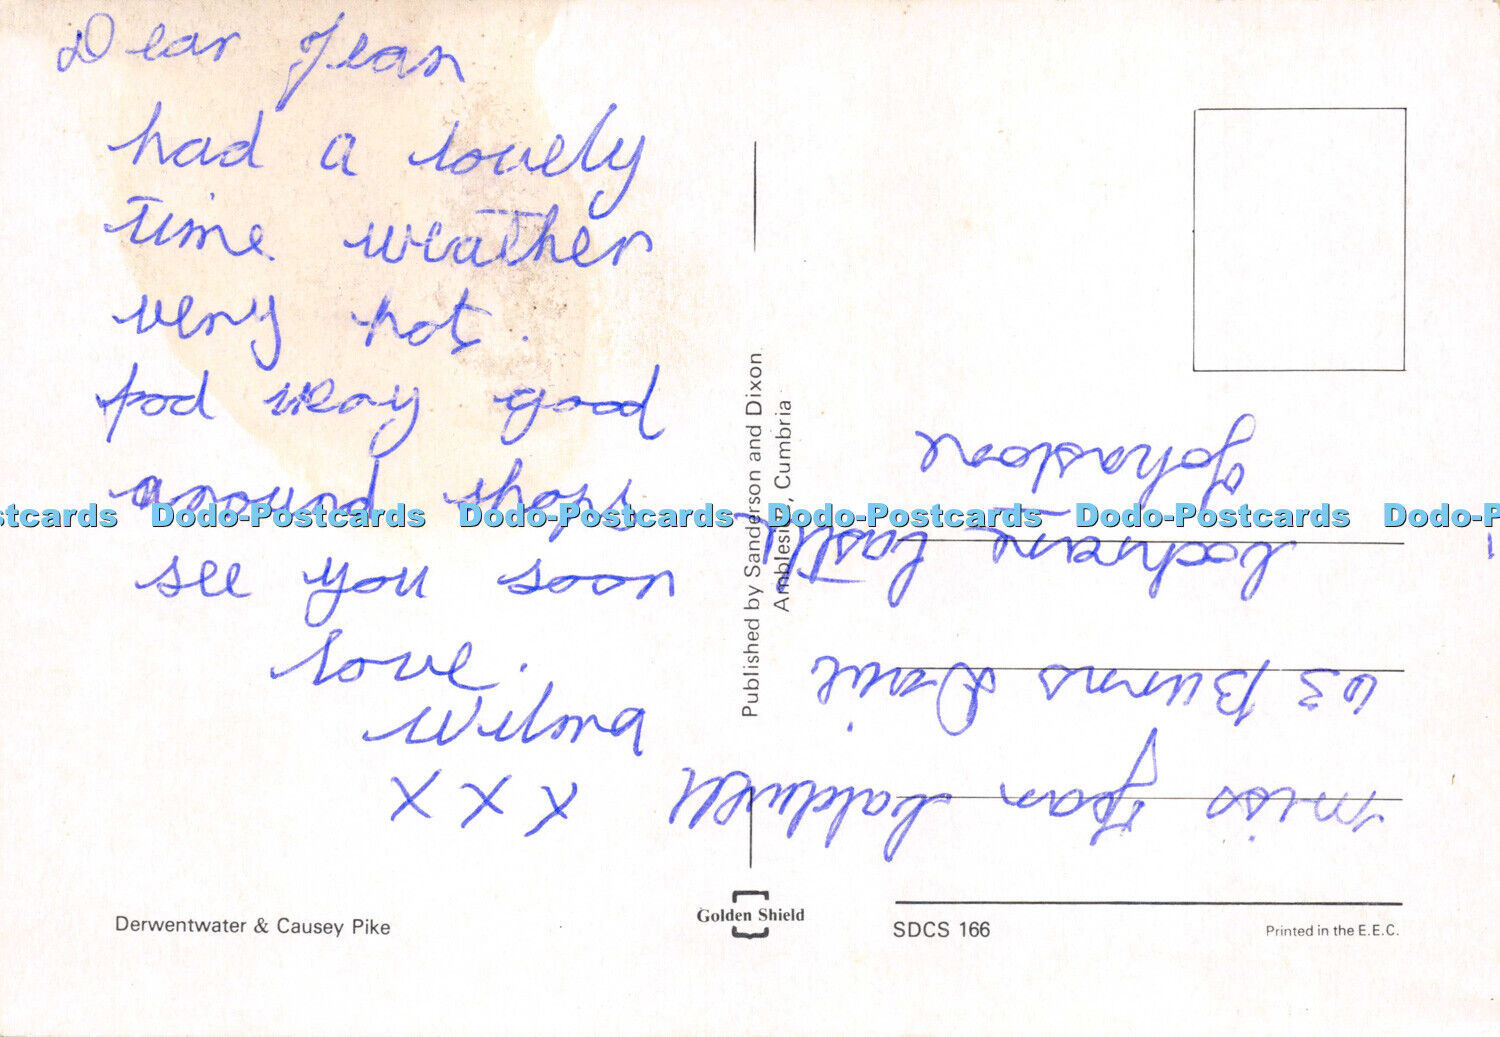 Dear Jean
had a lovely
time weather
very hot.
food very good
around shops
see you soon
love.
Wilma
X X X
Derwentwater & Causey Pike
Published by Sanderson and Dixon
Ambleside, Cumbria
Golden Shield
miss Jean Caldwell
63 Burns Drive
Cochrane Castle
Johnstone
SDCS 166
Printed in the E.E.C.
Dodo-Postcards Dodo-Postcards Dodo-Postcards Dodo-Postcards